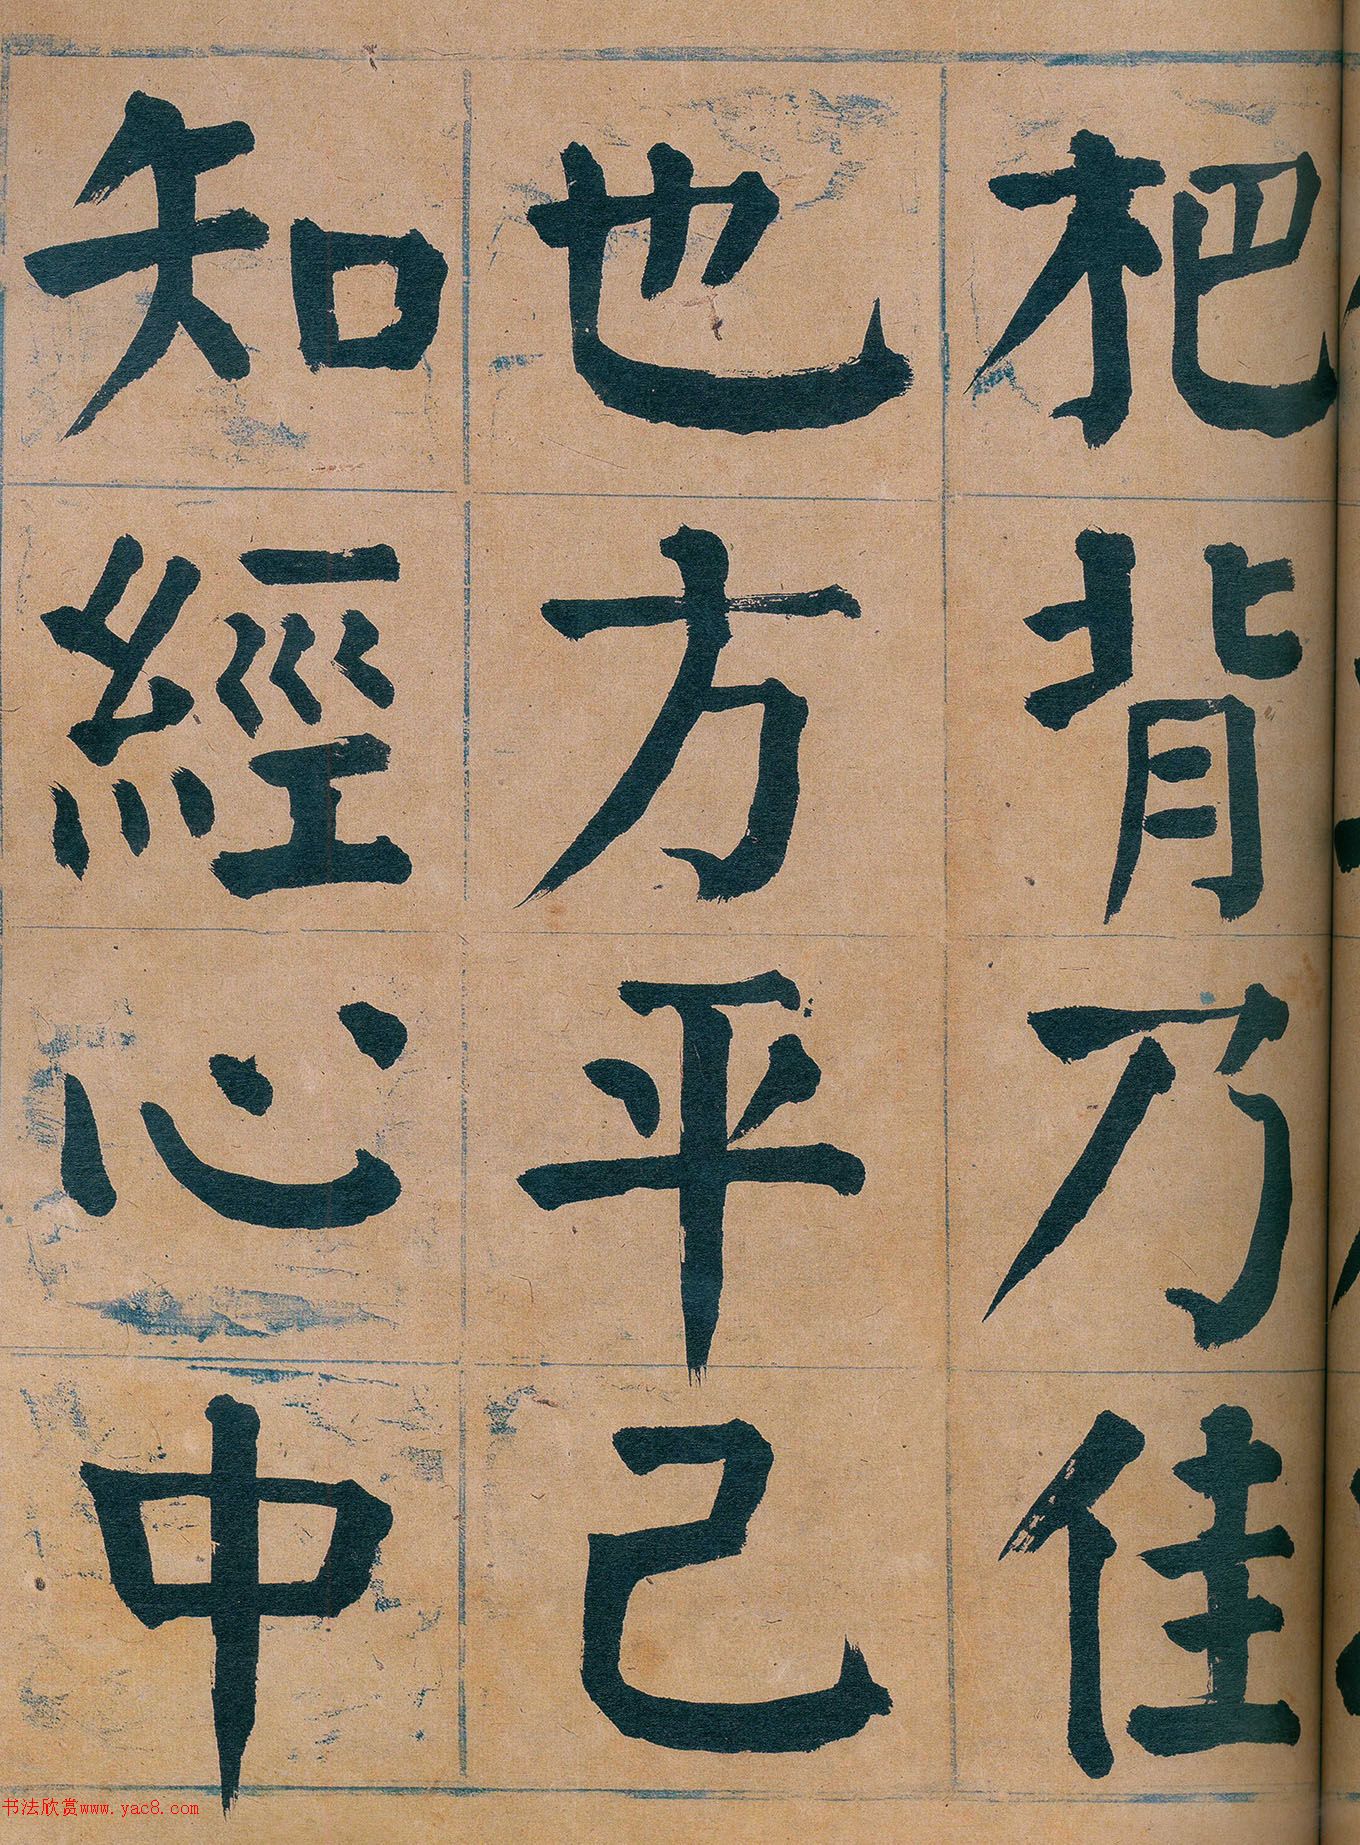 杷背乃佳
也方平己
知經心中
书法欣赏www.yac8.com